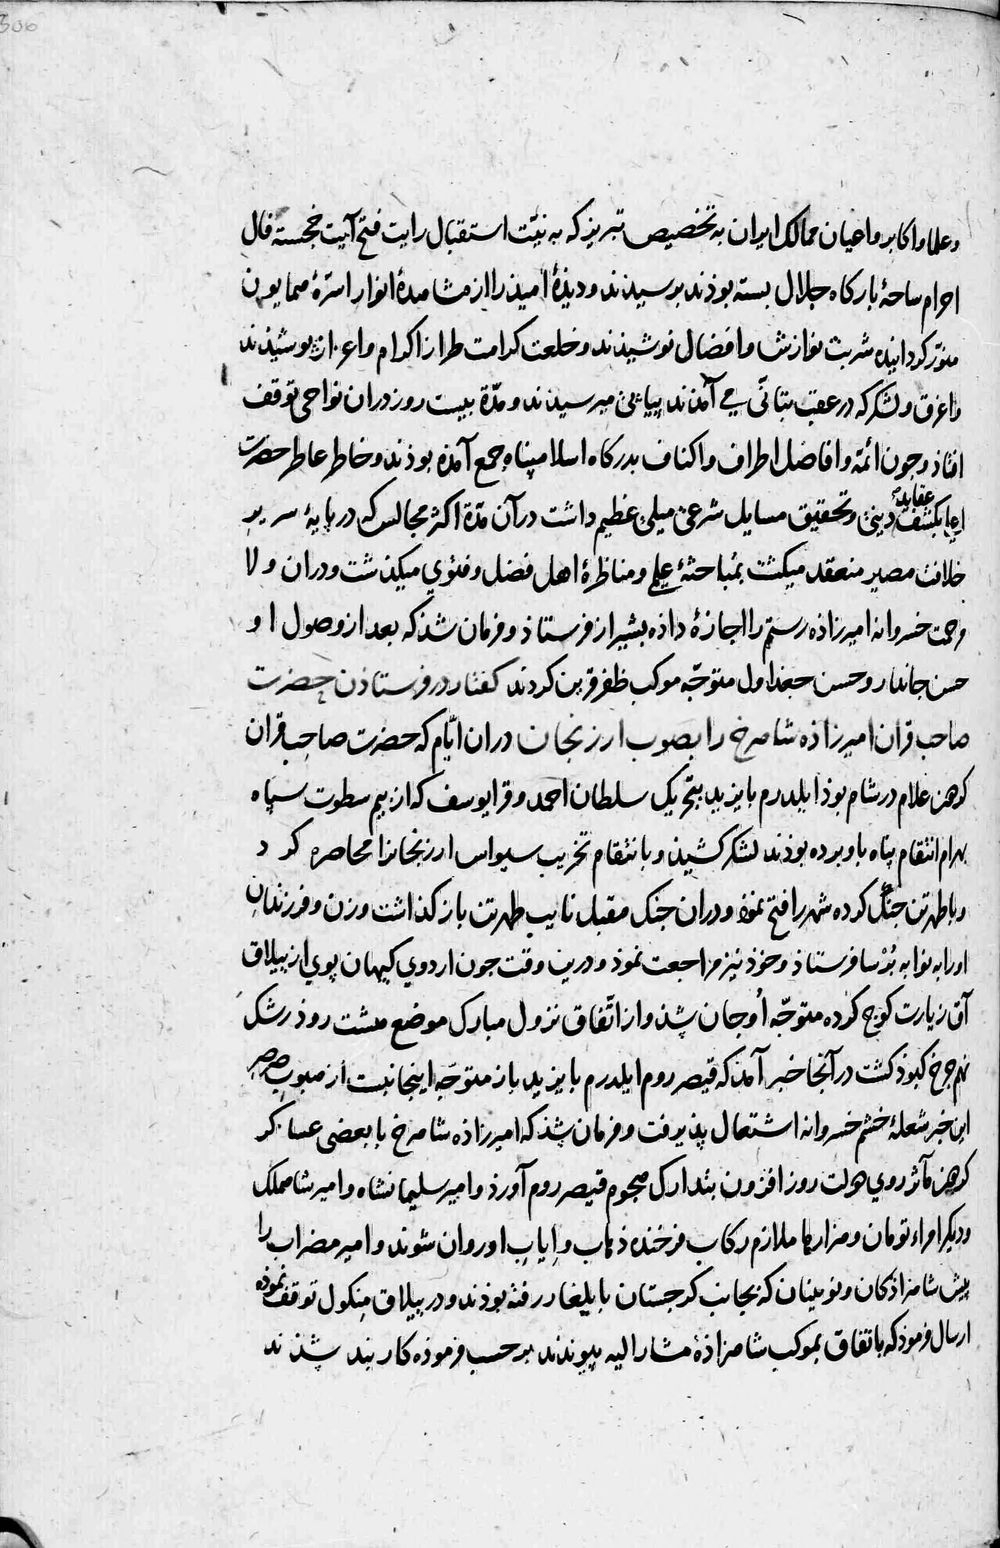 وعلما و اکابر و اعیان ممالک ایران به تخصیص تبریز که به نیّت استقبال رایت فتح آیت خجسته فال
احرام ساحهٔ بارکاه جلال بسته بوذند برسیدند و دیذهٔ امیذ را از مشاهدهٔ انوار اسرّهٔ همایون
منوّر کردانیده شربت نوازش و افضال نوشیذند و خلعت کرامت طراز اکرام و اعزاز بوشیذند
واغرق و لشکر که در عقب بتأنّی می آمذند پیاپی میرسیدند و مدّة بیست روز دران نواحی توقف
افتاذ و جون ائمّه و افاضل اطراف و اکناف بدرکاه اسلام پناه جمع آمذه بوذند و خاطر عاطر حضرت
اعلی بکشف عقاید دینی و تحقیق مسایل شرعی میلی عظیم داشت در آن مدّة اکثر مجالس که در پایهٔ سریر
خلافت مصیر منعقد میکشت بمباحثهٔ علمی و مناظرهٔ اهل فضل و فتوی میکذشت و دران ولا
مرحمت خسروانه امیرزاذه رستم را اجازة داذه بشیراز فرستاذ و فرمان شذ که بعد از وصول او
حسن جاندار و حسن جغداول متوجّه موکب ظفر قرین کردند کفتار در فرستاذن حضرت
صاحب قران امیرزاذه شاهرخ را بصوب ارزنجان دران ایّام که حضرت صاحب قران
کوهر غلام در شام بوذ ایلدرم بایزید بتحریک سلطان احمد و قرایوسف که از بیم سطوت سپاه
بهرام انتقام پناه باو برده بوذند لشکر کشیذ و بانتقام تخریب سیواس ارزنجانرا محاصره کرد
و با طهرتن جنک کرده شهر را فتح نموذ و دران جنک مقبل نایب طهرتن باز کذاشت و زن و فرزندان
او را به نوا به بُرْسا فرستاذ و خوذ نیز مراجعت نموذ و درین وقت جون اردوی کیهان پوی از ییلاق
آق زیارت کوچ کرده متوجّه اُوجان شذ و از اتّفاق نزول مبارک موضع هشت روذ رشک
نهم جرخ کبوذ کشت در آنجا خبر آمذ که قیصر روم ایلدرم بایزید باز متوجّه اینجانبت از صوب صرصر
این خبر شعلهٔ خشم خسروانه اشتعال پذیرفت و فرمان شذ که امیرزاذه شاهرخ با بعضی عساکر
کوهر مآثر روی دولت روز افزون بتدارک هجوم قیصر روم آورذ و امیر سلیمانشاه و امیر شاهملک
و دیکر امراء تومان و هزارها ملازم رکاب فرخنده ذهاب و ایاب او روان شوند و امیر مضراب را
پیش شاهزاذکان و نوینان که بجانب کرجستان بایلغار رفته بوذند و در ییلاق منکول توقف نموذه
ارسال فرموذ که باتفاق بموکب شاهزاذهٔ مشار الیه پیوندند بر حسب فرموذه کاربند شذند